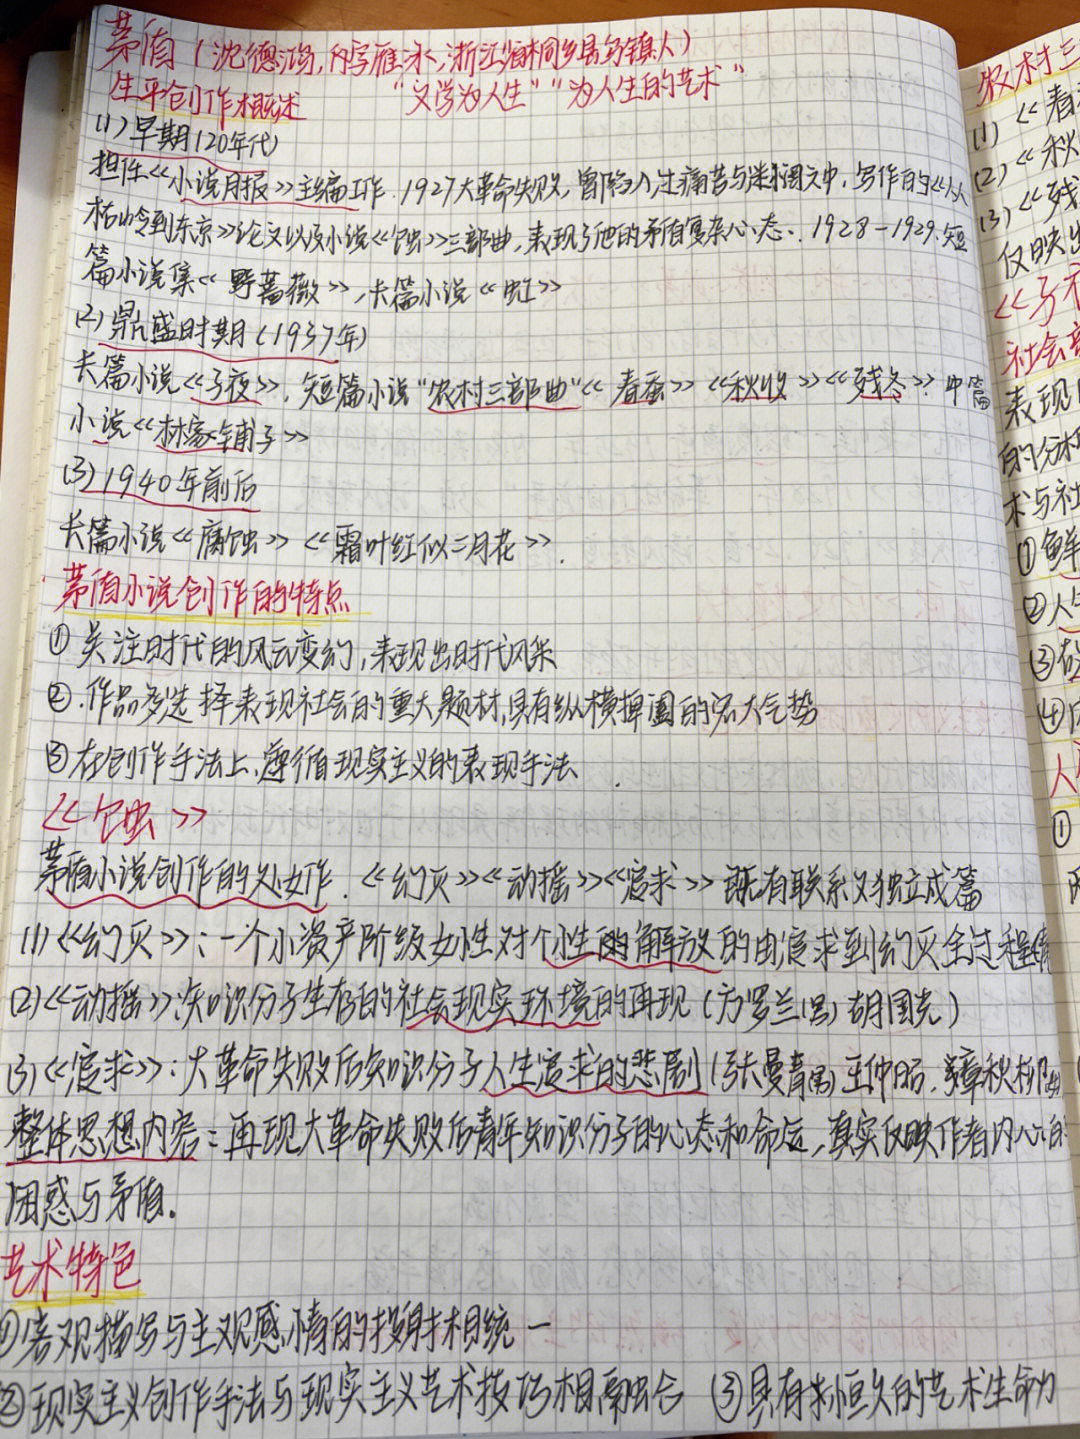 茅盾(沈德鸿,内字雁冰,浙江省桐乡县乌镇人)
生平创作概述 "文学为人生""为人生的艺术"
(1)早期(20年代)
担任《小说月报》主编工作.1927大革命失败,曾陷入过痛苦与迷惘之中,写作的《从
牯岭到东京》论文以及小说《蚀》三部曲,表现了他的矛盾复杂心态.1928-1929.短
篇小说集《野蔷薇》,长篇小说《虹》
(2)鼎盛时期(1937年)
长篇小说《子夜》,短篇小说"农村三部曲"《春蚕》《秋收》《残冬》.中篇
小说《林家铺子》
(3)1940年前后
长篇小说《腐蚀》《霜叶红似二月花》.
茅盾小说创作的特点
①关注时代的风云变幻,表现出时代风采
②.作品多选择表现社会的重大题材,具有纵横捭阖的宏大气势
③在创作手法上,遵循现实主义的表现手法.
《蚀》
茅盾小说创作的处女作.《幻灭》《动摇》《追求》既有联系又独立成篇
(1)《幻灭》:一个小资产阶级女性对个性的解放的由追求到幻灭全过程
(2)《动摇》:知识分子生存的社会现实环境的再现(方罗兰 胡国光)
(3)《追求》:大革命失败后知识分子人生追求的悲剧(张曼青 王仲昭.章秋柳
整体思想内容:再现大革命失败后青年知识分子的心态和命运,真实反映作者内心的
困惑与矛盾.
艺术特色
①客观描写与主观感情的投射相统一
②现实主义创作手法与现实主义艺术技巧相融合 ③具有永恒久的艺术生命力
农村三
(1)《春
(2)《秋
(3)《残
反映出
《子
社会
表现
的分析
术与社
①鲜
②人
③
④
人
①